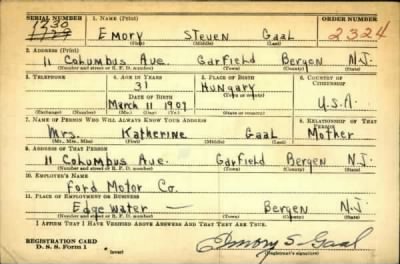 SERIAL NUMBER 1. NAME (Print) ORDER NUMBER
1230
1729 Emory Steven Gaal 2324
(First) (Middle) (Last)
2. ADDRESS (Print)
11 Columbus Ave. Garfield Bergen N.J.
(Number and street or R. F. D. number) (Town) (County) (State)
3. TELEPHONE 4. AGE IN YEARS 5. PLACE OF BIRTH 6. COUNTRY OF CITIZENSHIP
31 Hungary
DATE OF BIRTH (Town or county)
March 11 1909 U.S.A.
(Exchange) (Number) (Mo.) (Day) (Yr.) (State or country)
7. NAME OF PERSON WHO WILL ALWAYS KNOW YOUR ADDRESS 8. RELATIONSHIP OF THAT PERSON
Mrs. Katherine Gaal Mother
(Mr., Mrs., Miss) (First) (Middle) (Last)
9. ADDRESS OF THAT PERSON
11 Columbus Ave. Garfield Bergen N.J.
(Number and street or R. F. D. number) (Town) (County) (State)
10. EMPLOYER'S NAME
Ford Motor Co.
11. PLACE OF EMPLOYMENT OR BUSINESS
Edgewater — Bergen N.J.
(Number and street or R. F. D. number) (Town) (County) (State)
I AFFIRM THAT I HAVE VERIFIED ABOVE ANSWERS AND THAT THEY ARE TRUE.
REGISTRATION CARD
D. S. S. Form 1 (over) Emory S. Gaal
(Registrant's signature)